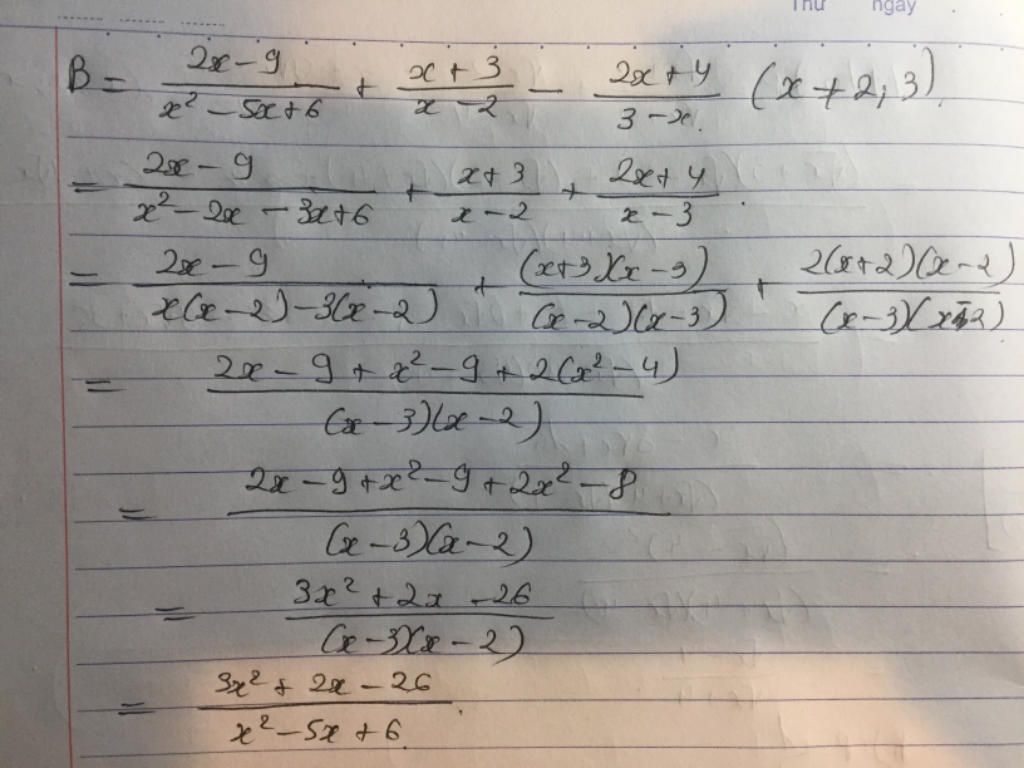 Thứ ngày
B = \frac{2x-9}{x^2-5x+6} + \frac{x+3}{x-2} - \frac{2x+4}{3-x} (x ≠ 2; 3)
= \frac{2x-9}{x^2-2x-3x+6} + \frac{x+3}{x-2} + \frac{2x+4}{x-3}
= \frac{2x-9}{x(x-2)-3(x-2)} + \frac{(x+3)(x-3)}{(x-2)(x-3)} + \frac{2(x+2)(x-2)}{(x-3)(x-2)}
= \frac{2x-9+x^2-9+2(x^2-4)}{(x-3)(x-2)}
= \frac{2x-9+x^2-9+2x^2-8}{(x-3)(x-2)}
= \frac{3x^2+2x-26}{(x-3)(x-2)}
= \frac{3x^2+2x-26}{x^2-5x+6}.